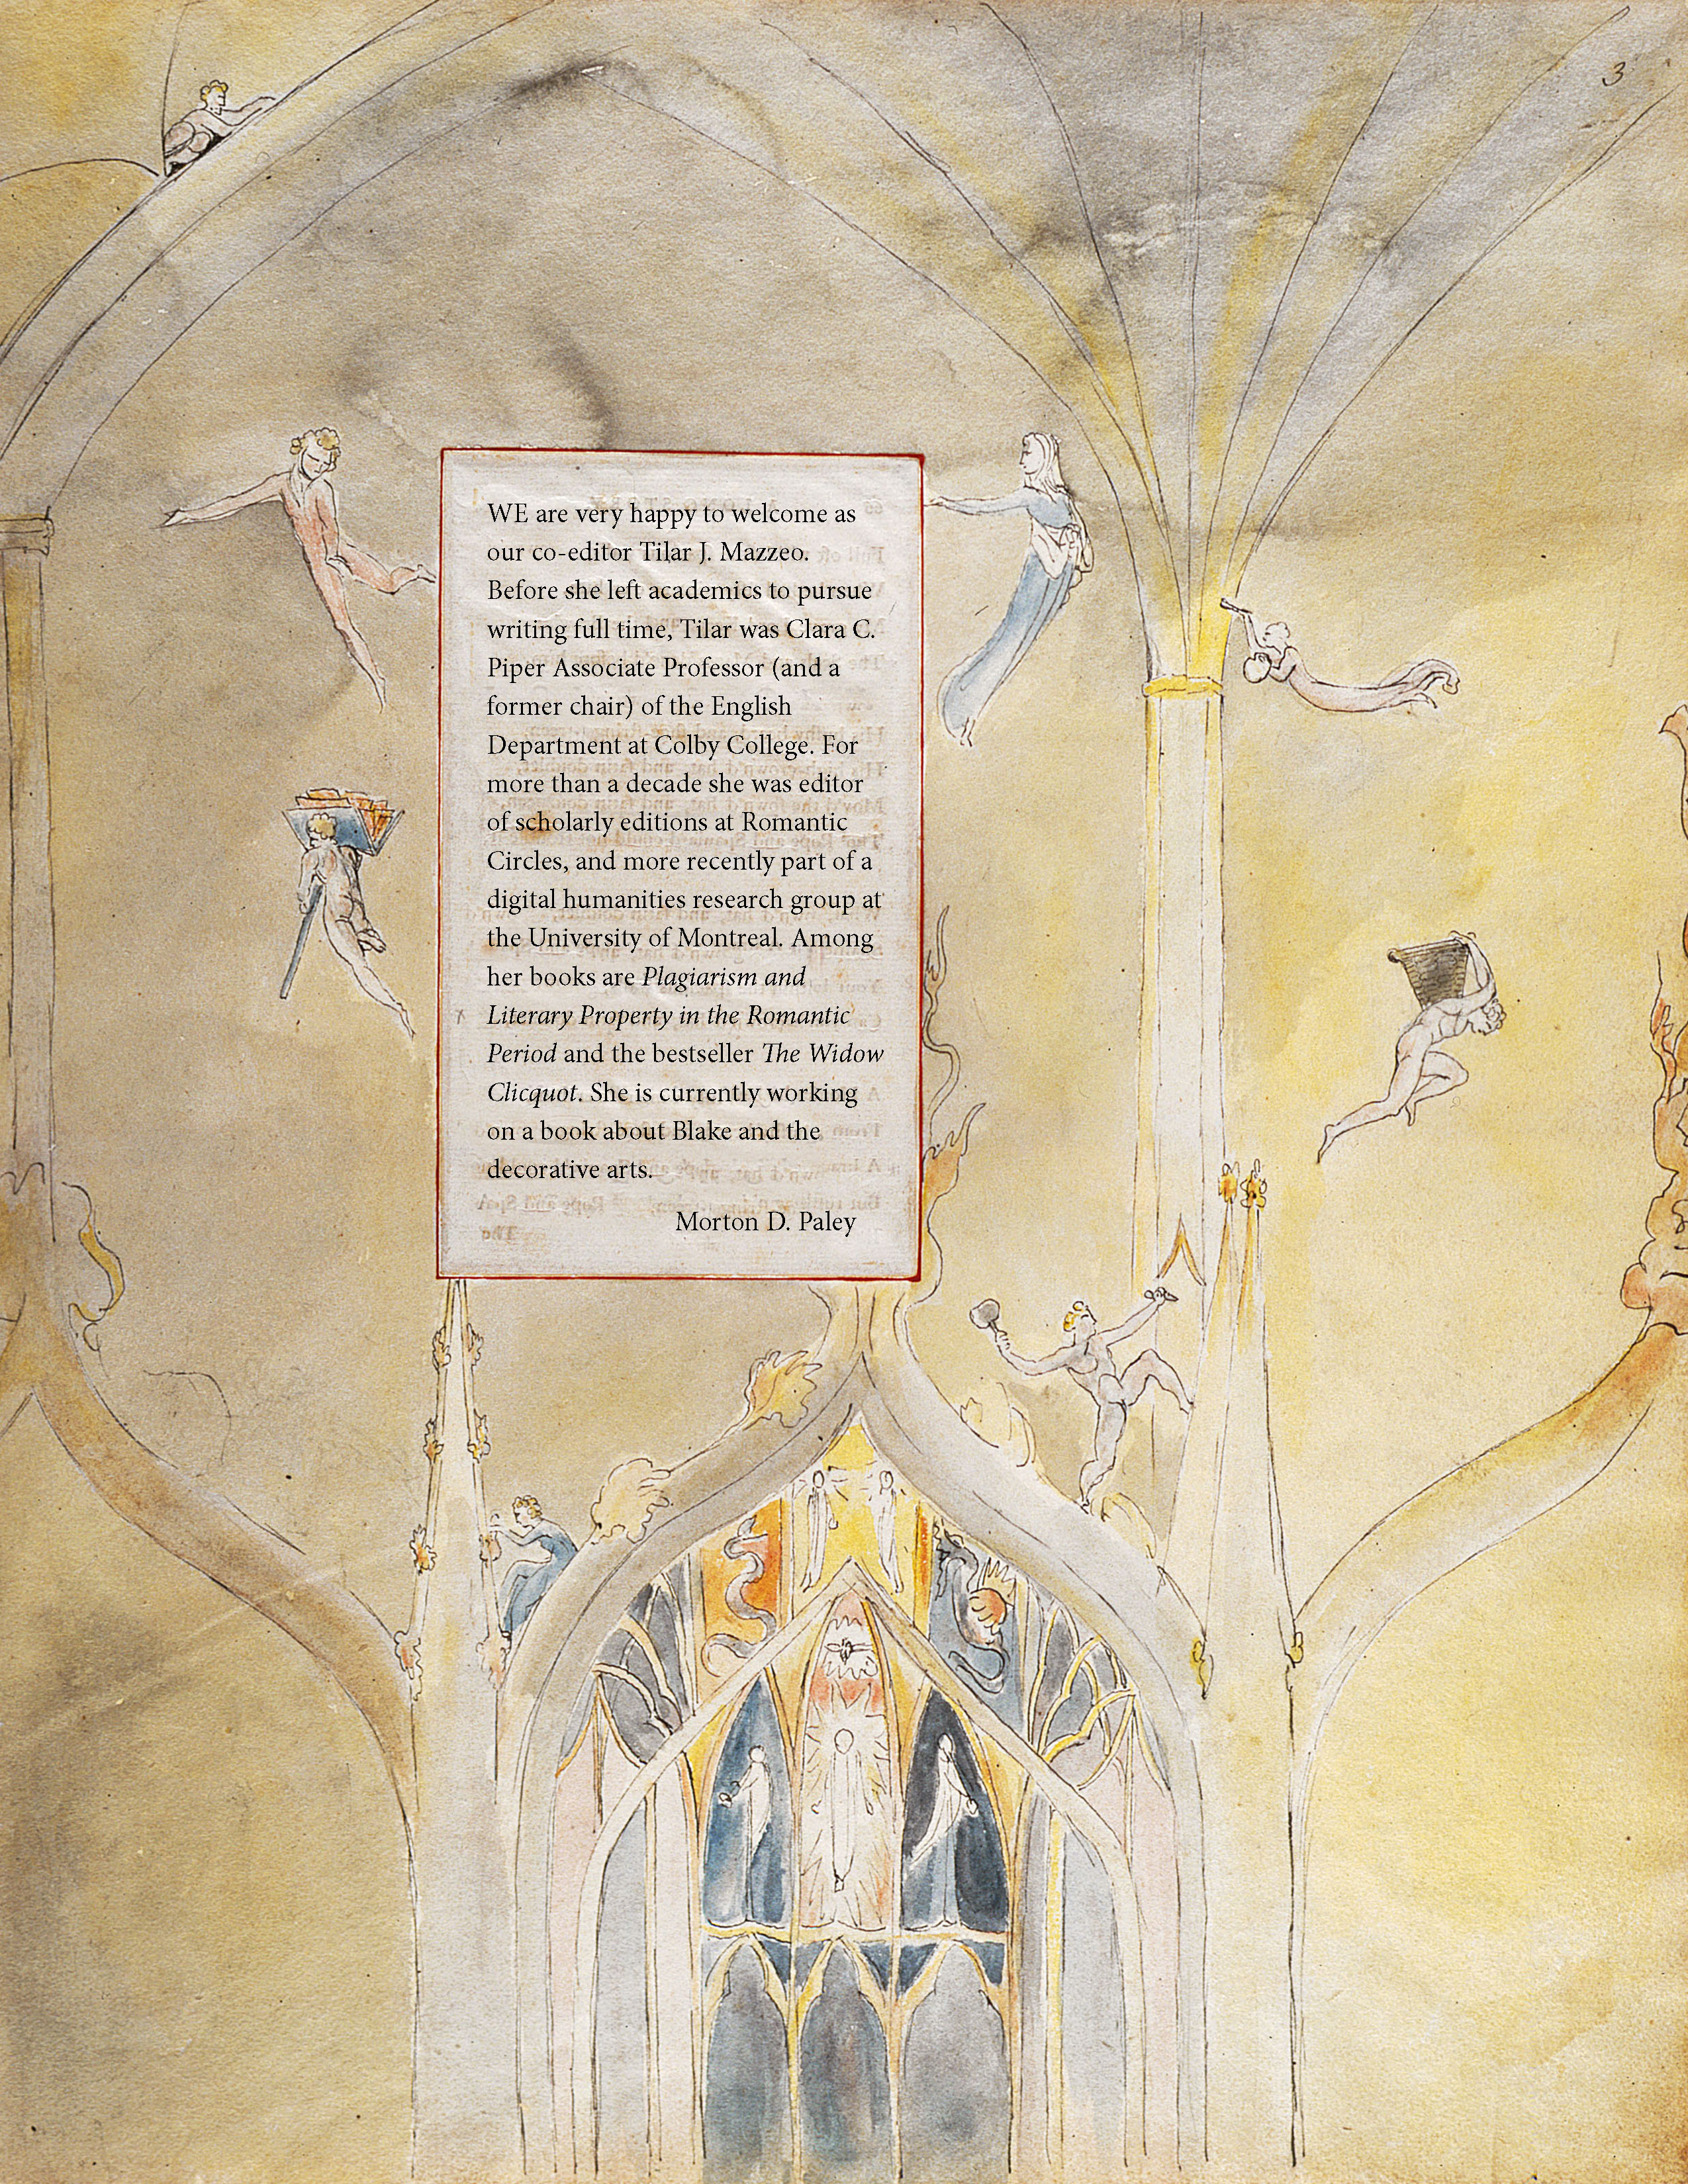 3
WE are very happy to welcome as
our co-editor Tilar J. Mazzeo.
Before she left academics to pursue
writing full time, Tilar was Clara C.
Piper Associate Professor (and a
former chair) of the English
Department at Colby College. For
more than a decade she was editor
of scholarly editions at Romantic
Circles, and more recently part of a
digital humanities research group at
the University of Montreal. Among
her books are Plagiarism and
Literary Property in the Romantic
Period and the bestseller The Widow
Clicquot. She is currently working
on a book about Blake and the
decorative arts.
Morton D. Paley